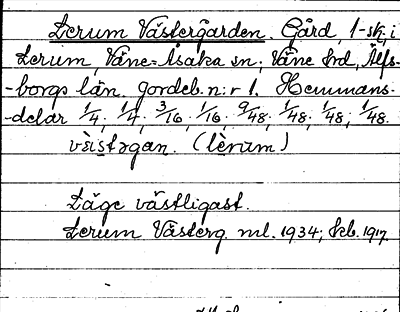 Lerum Västergården. Gård, 1-sk; i
Lerum, Väne-Åsaka sn; Väne hrd, Älfs-
-borgs län. Jordeb. n:r 1. Hemmans-
-delar 1/4; 1/4; 3/16; 1/16; 9/48; 1/48; 1/48; 1/48.
vèistəgan. (lèrum)
Läge västligast.
Lerum Västerg. ml. 1934; Skb. 1917.